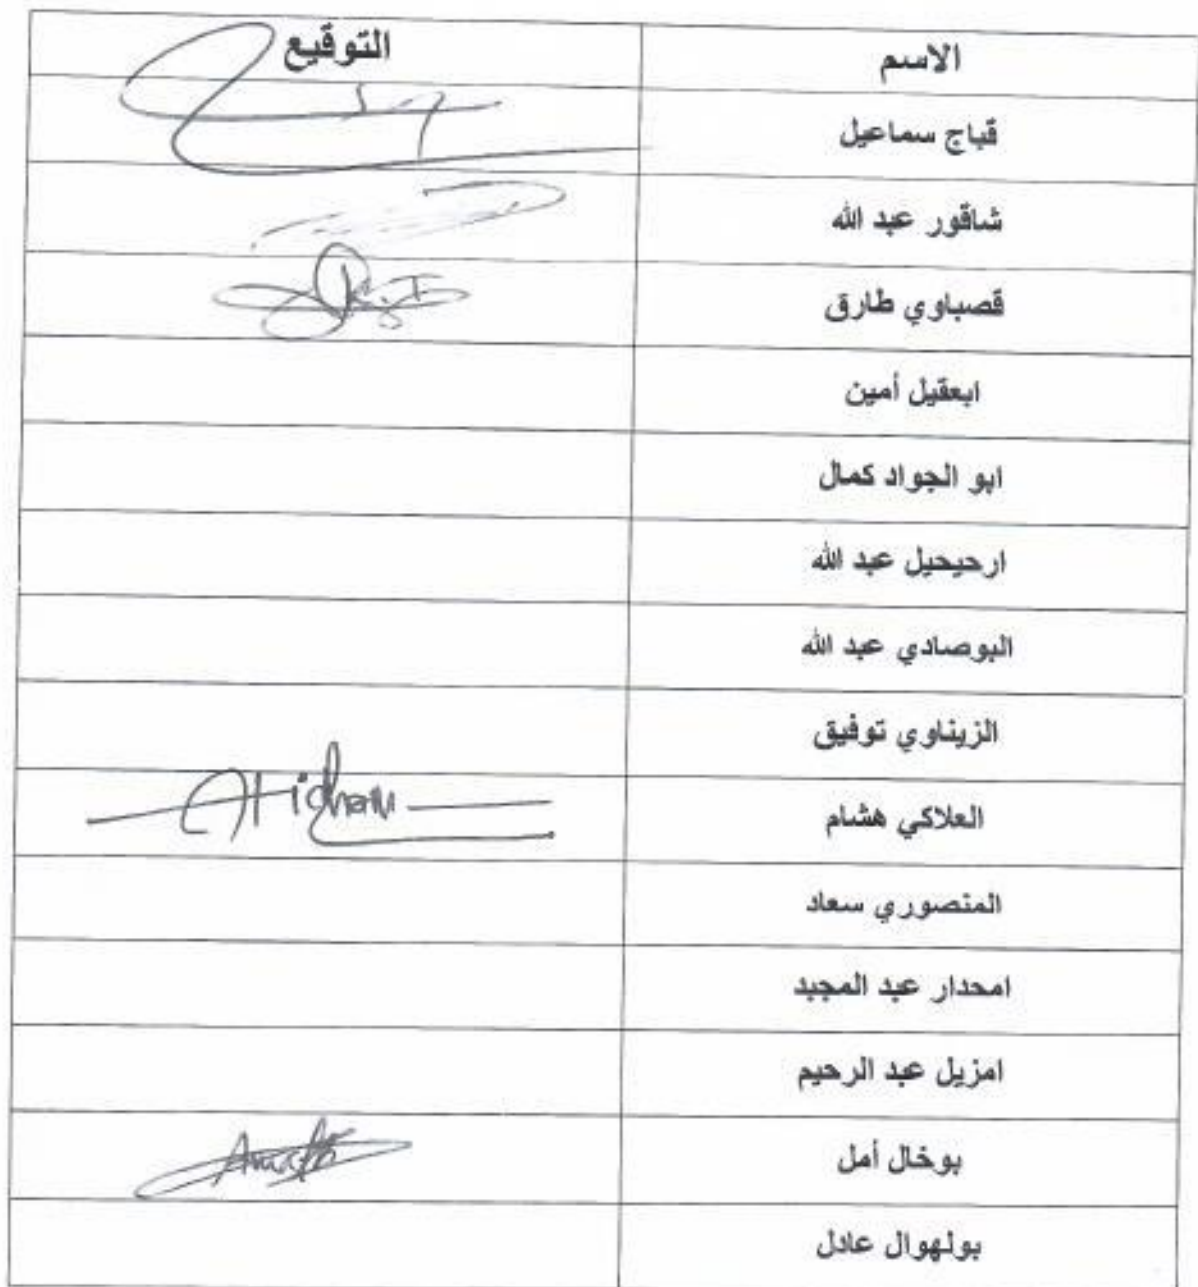 الاسم التوقيع
قباج سماعيل
شاقور عبد الله
قصباوي طارق
ابعقيل أمين
ابو الجواد كمال
ارحيحيل عبد الله
البوصادي عبد الله
الزيناوي توفيق
العلاكي هشام Hicham
المنصوري سعاد
امحدار عبد المجيد
امزيل عبد الرحيم
بوخال أمل
بولهوال عادل